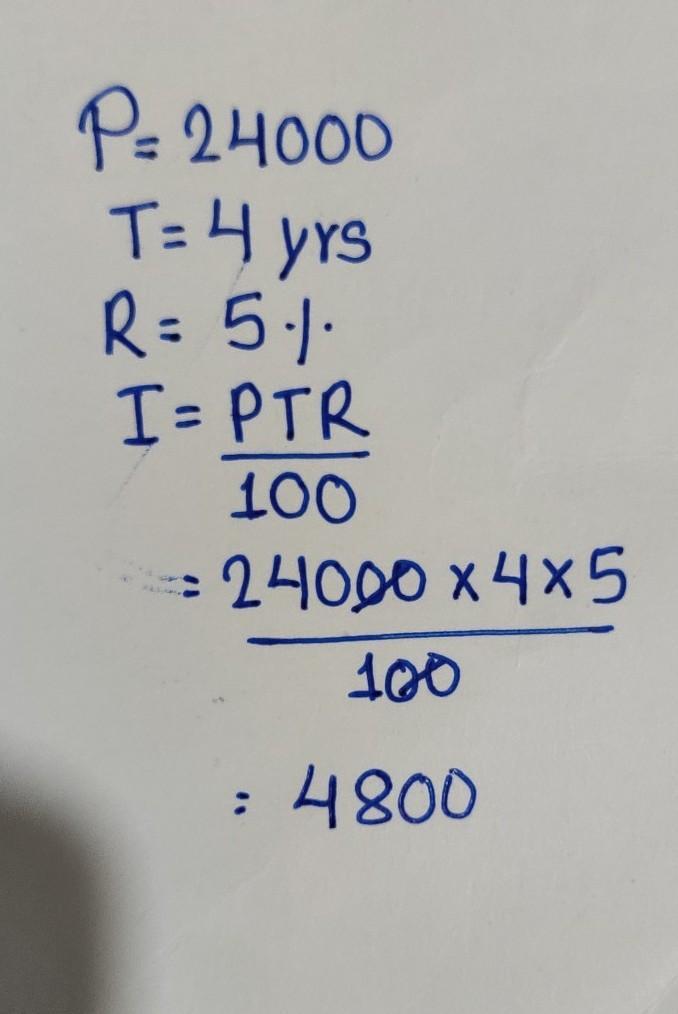 P= 24000
T= 4 yrs
R= 5%
I= PTR
100
= 24000 x 4 x 5
100
= 4800